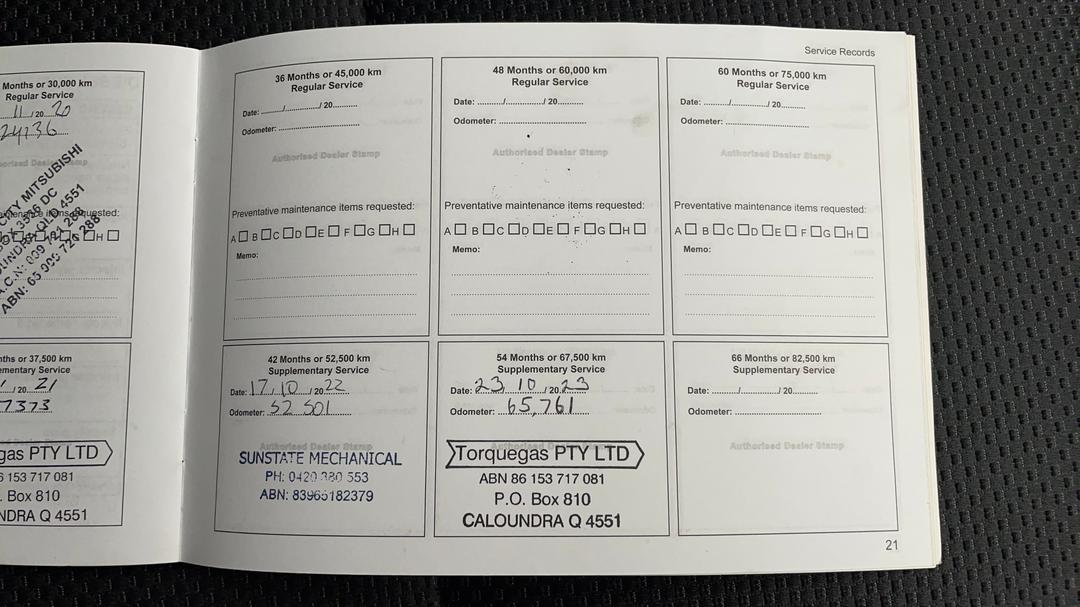 Service Records
Months or 30,000 km
Regular Service
11 /20 20
24736
CITY MITSUBISHI
DC
QLD 4551
ABN: 65 009 728 288
H
ths or 37,500 km
ementary Service
/20 21
7373
gas PTY LTD
6 153 717 081
. Box 810
NDRA Q 4551
36 Months or 45,000 km
Regular Service
Date: ........../............../ 20..........
Odometer: ..............................
Authorised Dealer Stamp
Preventative maintenance items requested:
A B C D E F G H
Memo:
48 Months or 60,000 km
Regular Service
Date: ........../............../ 20..........
Odometer: ..............................
Authorised Dealer Stamp
Preventative maintenance items requested:
A B C D E F G H
Memo:
60 Months or 75,000 km
Regular Service
Date: ........../............../ 20..........
Odometer: ..............................
Authorised Dealer Stamp
Preventative maintenance items requested:
A B C D E F G H
Memo:
42 Months or 52,500 km
Supplementary Service
Date: 17/10/20 22
Odometer: 52 501
Authorised Dealer Stamp
SUNSTATE MECHANICAL
PH: 0420 380 553
ABN: 83965182379
54 Months or 67,500 km
Supplementary Service
Date: 23 10 /20 23
Odometer: 65,761
Authorised Dealer Stamp
Torquegas PTY LTD
ABN 86 153 717 081
P.O. Box 810
CALOUNDRA Q 4551
66 Months or 82,500 km
Supplementary Service
Date: ........../............../ 20..........
Odometer: ..............................
Authorised Dealer Stamp
21